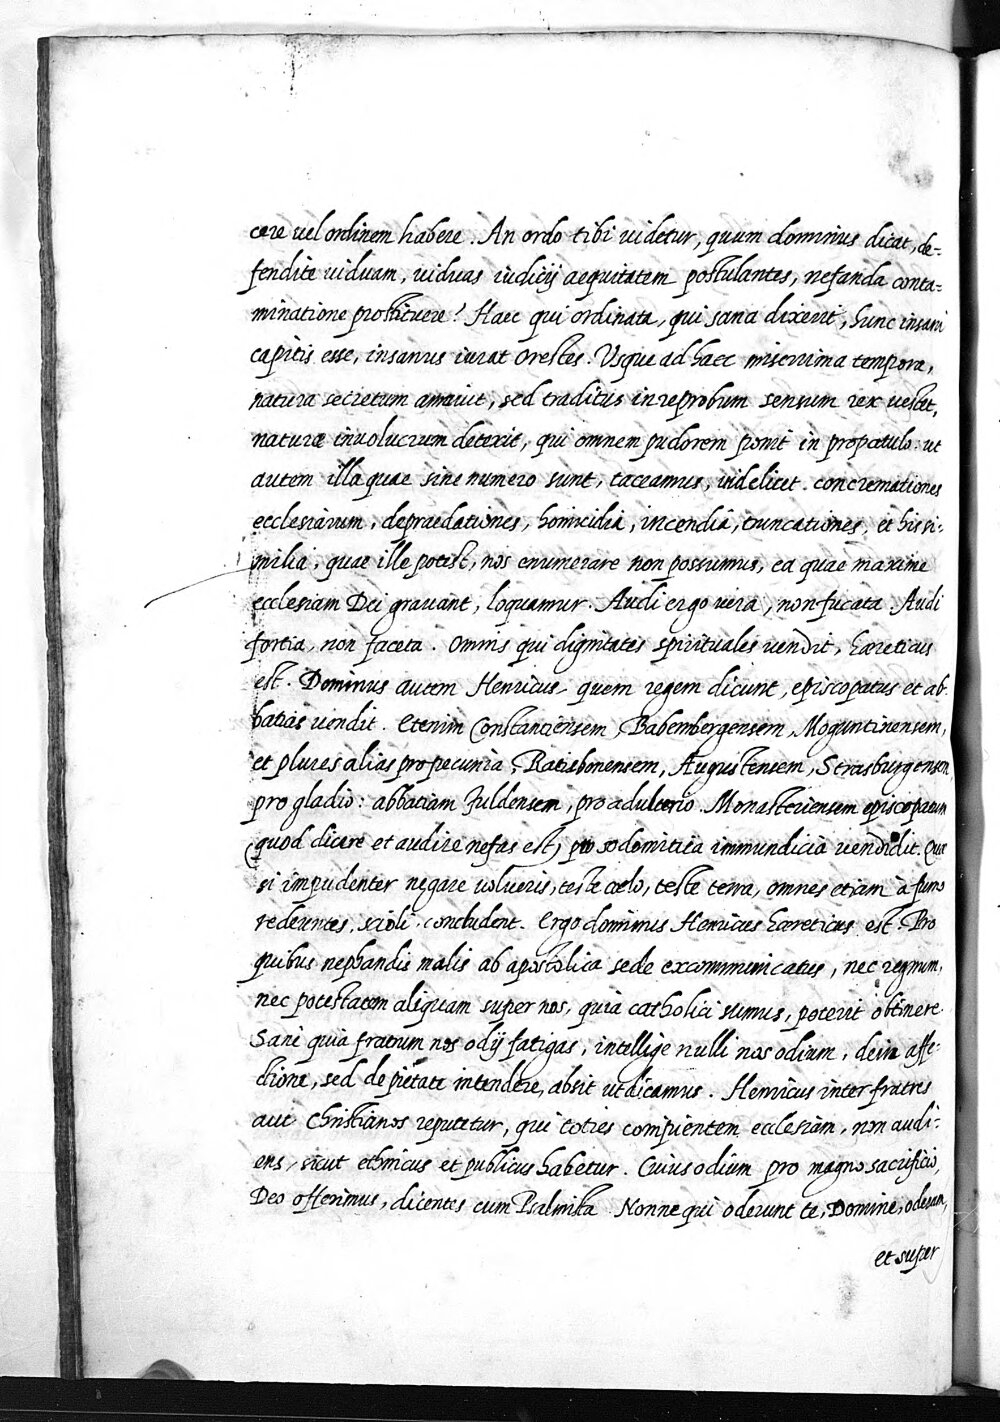 cere vel ordinem habere. An ordo tibi videtur, quum dominus dicat, de=
fendite viduam, viduas iudicij aequitatem postulantes, nefanda conta=
minatione prostituere? Haec qui ordinata, qui sana dixerit, hunc insani
capitis esse, insanus iurat Orestes. Usque ad haec miserrima tempora,
natura secretum amavit, sed traditus in reprobum sensum rex vester,
naturae involucrum detexit, qui omnem pudorem ponit in propatulo: ut
autem illa quae sine numero sunt, taceamus, videlicet. concremationes
ecclesiarum, depraedationes, homicidia, incendia, truncationes, et his si:
milia, quae ille potest, nos enumerare non possumus, ea quae maxime
ecclesiam Dei gravant, loquamur. Audi ergo vera, non fucata. Audi
fortia, non faceta. Omnis qui dignitates spirituales vendit, haereticus
est. Dominus autem Henricus quem regem dicunt, episcopatus et ab.
batias vendit. Etenim Constantiensem, Babembergensem, Moguntinensem,
et plures alias pro pecunia, Ratisbonensem, Augustensem, Strasburgensem,
pro gladio: abbatiam Fuldensem, pro adulterio. Monasteriensem episcopatum
(quod dicere et audire nefas est) pro sodomitica immundicia vendidit. Quae
si impudenter negare volueris, teste caelo, teste terra, omnes etiam à furno
redeuntes, scioli, concludent. Ergo dominus Henricus haereticus est. Pro
quibus nephandis malis ab apostolica sede excommunicatus, nec regnum,
nec potestatem aliquam super nos, quia catholici sumus, poterit obtinere.
Sane quia fratrum nos odij fatigas, intellige nulli nos odium, dein affe:
ctione, sed de pietate intendere, absit ut dicamus. Henricus inter fratres
aut Christianos reputetur, qui toties compientem ecclesiam, non audi:
ens, sicut ethnicus et publicus habetur. Cuius odium pro magno sacrificio,
Deo offerimus, dicentes cum Psalmista. Nonne qui oderunt te, Domine, oderam,
et super